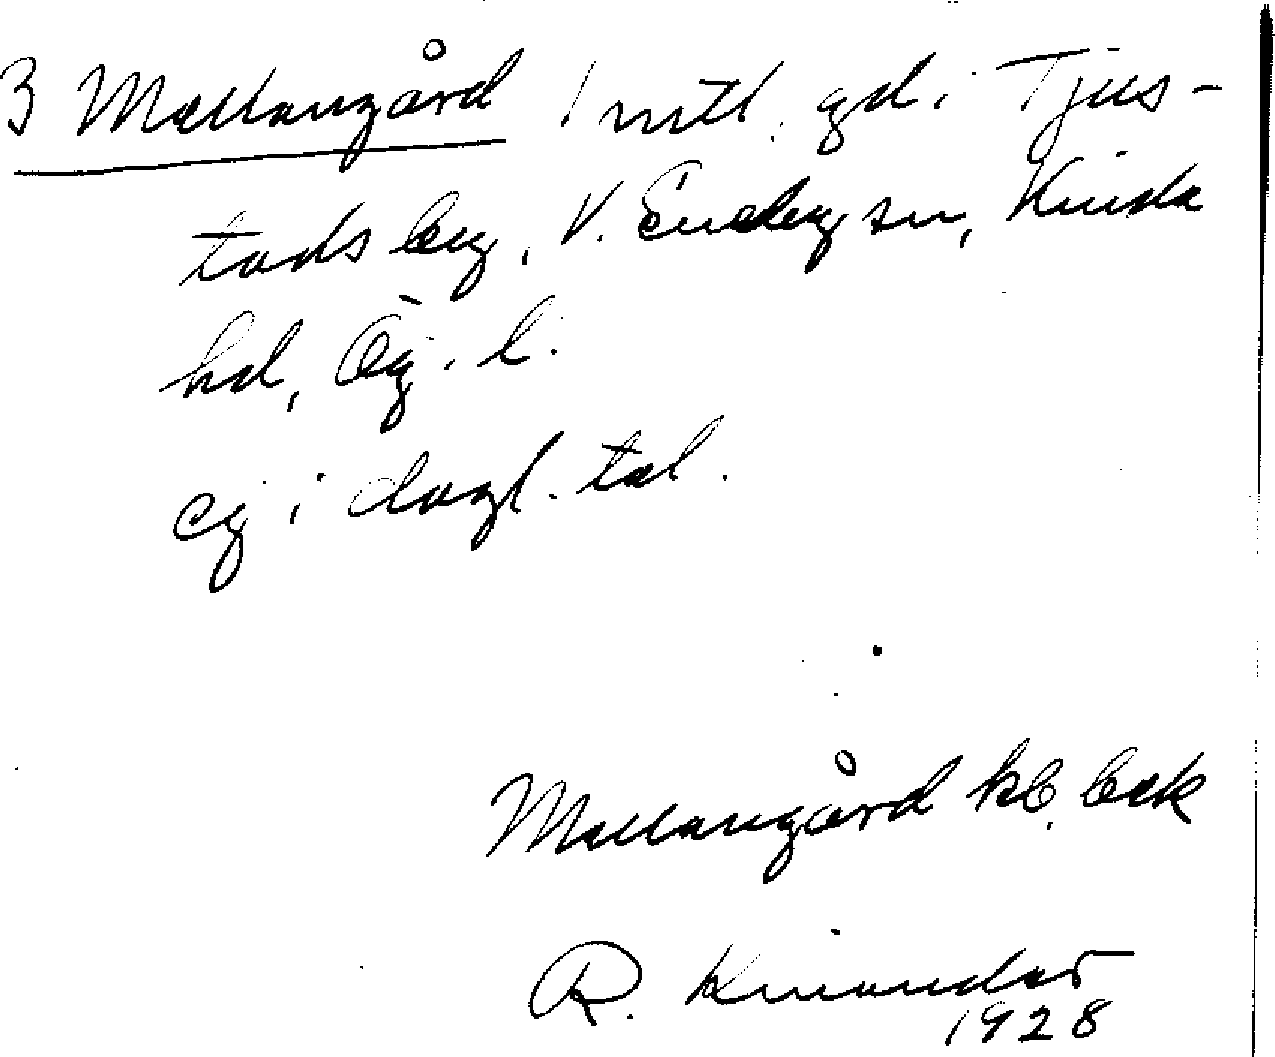 3 Mellangård 1 mtl. gd i Tjus-
tads by, V. Eneby sn, Kinda
hd, Ög. l.
ej i dagl. tal.
Mellangård kb, bek
R. Kinander
1928